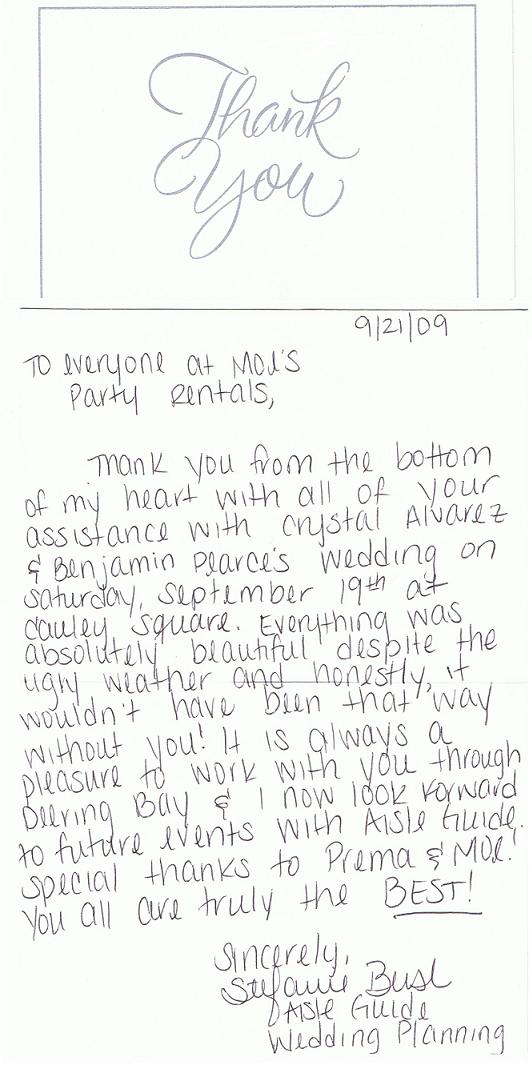 Thank
You
9/21/09
To everyone at Moe's
Party Rentals,
Thank you from the bottom
of my heart with all of your
assistance with Crystal Alvarez
& Benjamin Pearce's wedding on
Saturday, September 19th at
Cauley Square. Everything was
absolutely beautiful despite the
ugly weather and honestly, it
wouldn't have been that way
without you! It is always a
pleasure to work with you through
Deering Bay & I now look forward
to future events with Aisle Guide.
Special thanks to Prema & Moe!
You all are truly the BEST!
Sincerely,
Stefanie
Aisle Guide
Wedding Planning